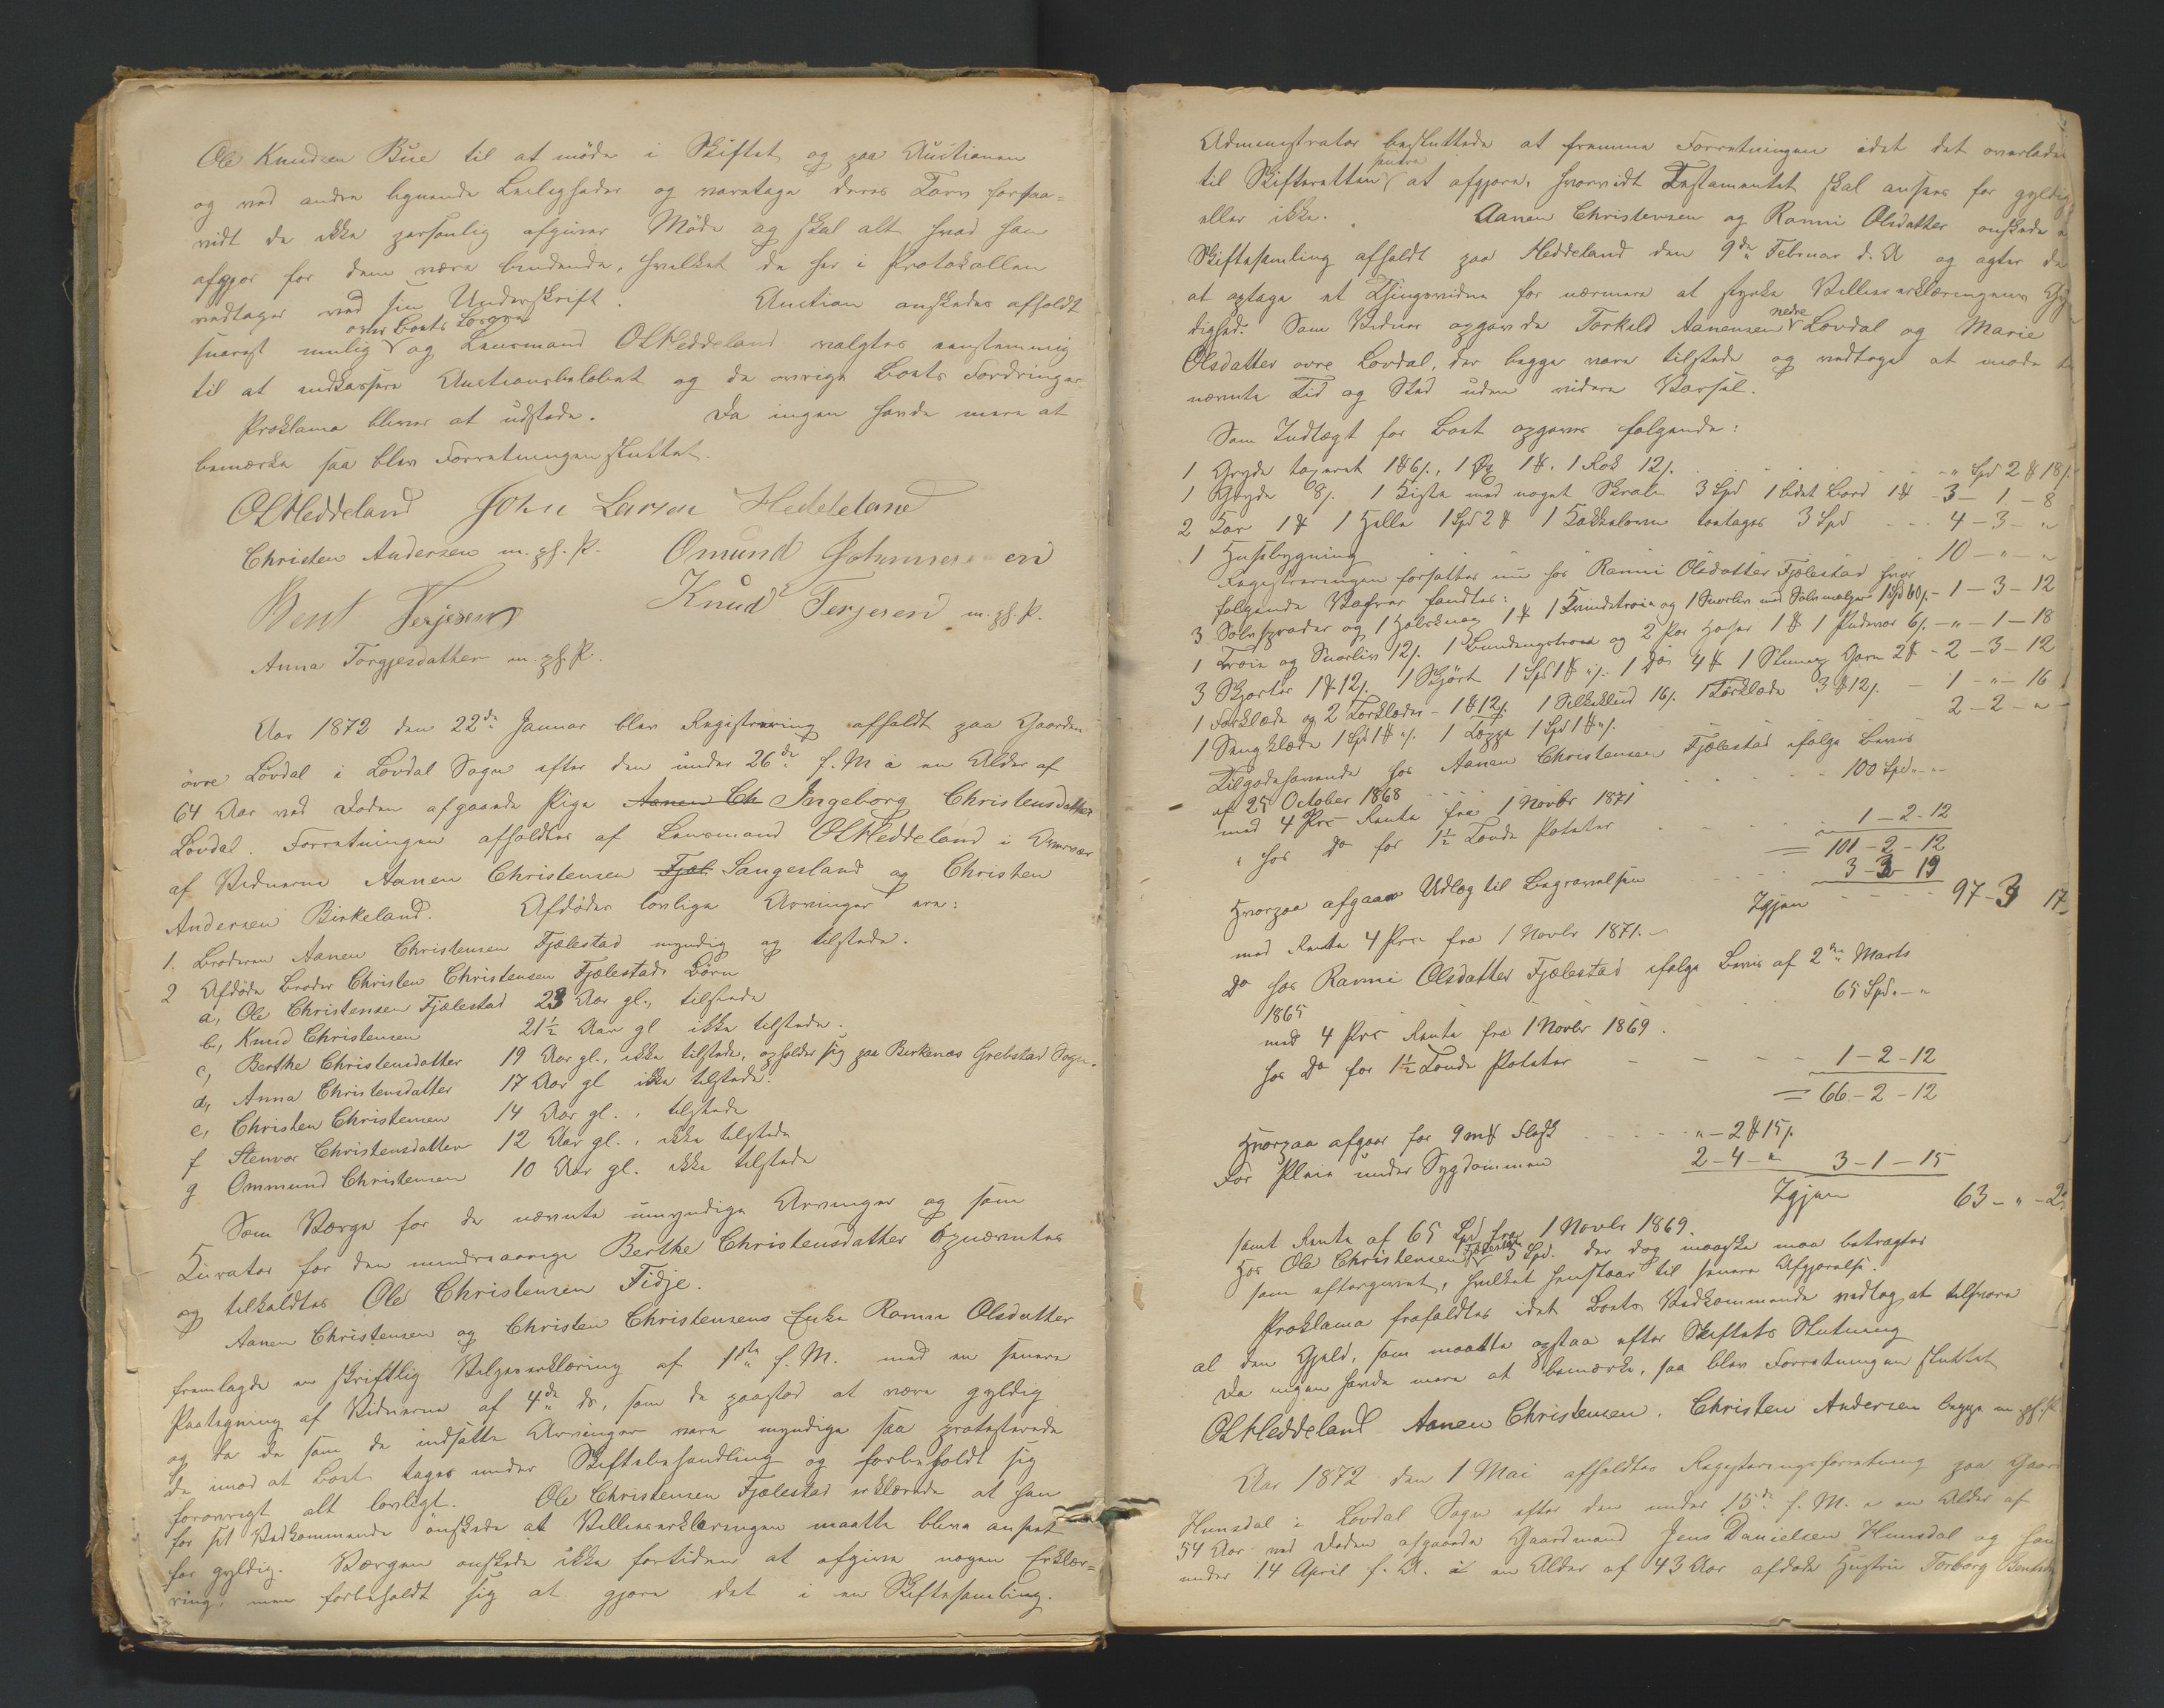 Ole Knudsen Bue til at möde i Skiftet og paa Auctionen
og ved andre lignende Leiligheder og varetage deres Tarv forsaa-
vidt de ikke personlig afgiver Möde og skal alt hvad han
afgjør for dem være bindende, hvilket de her i Protokollen
vedtager ved sin Underskrift. Auction onskedes afholdt
snarest mulig over Boets Løsøre og Lensmand OLHeddeland valgtes eenstemmig
til at indkassere Auctionsbeløbet og de øvrige Boets Fordringer
Proklama bliver at udstede. Da ingen havde mere at
bemærke saa blev Forretningen sluttet.
OLHeddeland John Larsen Heddeland
Christen Andersen m. p. P. Omund Johannessen
Bent Terjesen Knud Terjesen m. p. P.
Anna Torgjesdatter m. p. P.
Aar 1872 den 22de Januar blev Registrering afholdt paa Gaarden
övre Lövdal i Lovdal Sogn efter den under 26de f. M. i en Alder af
64 Aar ved Døden afgaaede Pige Aanen Ch Ingeborg Christensdatter
Lövdal. Forretningen afholdtes af Lensmand OLHeddeland i Overvær
af Vidnerne Aanen Christensen Fjæl Sangesland og Christen
Andersen Birkeland. Afdødes lovlige Arvinger ere:
1. Broderen Aanen Christensen Fjælestad myndig og tilstede.
2 Afdøde Broder Christen Christensen Fjælestads Børn
a, Ole Christensen Fjælestad 23 Aar gl., tilstede
b, Knud Christensen 21½ Aar gl ikke tilstede.
c, Berthe Christensdatter 19 Aar gl., ikke tilstede, opholder sig paa Birkenæs Grebstad Sogn.
d, Anna Christensdatter 17 Aar gl ikke tilstede.
e, Christen Christensen 14 Aar gl., tilstede
f Stenvor Christensdatter 12 Aar gl., ikke tilstede
g Ommund Christensen 10 Aar gl. ikke tilstede
Som Værge for de nævnte umyndige Arvinger og som
Kurator for den mindreaarige Berthe Christensdatter opnævntes
og tilkaldtes Ole Christensen Fidje.
Aanen Christensen og Christen Christensens Enke Ranni Olsdatter
fremlagde en skriftlig Viljeserklæring af 1ste f. M. med en senere
Paategning af Vidnerne af 4de ds, som de paastod at være gyldig
og da de som de indsatte Arvinger vare myndige saa protesterede
de imod at Boet tages under Skiftebehandling og forbeholdt sig
forøvrigt alt lovligt. Ole Christensen Fjælestad erklærede at han
for sit Vedkommende önskede at Villieserkleringen maatte blive anseet
for gyldig. Værgen onskede ikke fortiden at afgive nogen Erklær-
ing, men forbeholdt sig at gjøre det i en Skiftesamling.
Administrator besluttede at fremme Forretningen idet det overlades
til Skifteretten senere at afgjøre, hvorvidt Testamentet skal ansees for gyldig
eller ikke. Aanen Christensen og Ranni Olsdatter onskede
Skiftesamling afholdt paa Heddeland den 9de Februar d. A og agter da
at optage et Thingsvidne for nærmere at styrke Villieserkleringens Gyl
dighed. Som Vidner opgav de Torkild Aanensen nedre Lovdal og Marie
Olsdatter ovre Lovdal, der begge vare tilstede og vedtoge at møde til
nævnte Tid og Sted uden videre Varsel.
Som Indtægt for Boet opgaves folgende:
1 Gryde taxeret 1 6/., 1 Øg 1. 1 Rok 12/. " Spd 2 18/.
1 Gryde 8/. 1 Kiste med noget Skrale 3 Spd 1 lidet Bord 1 - 3 - 1 - 8
2 Kar 1 1 Helle 1 Spd 2 1 Kakkelovn taxeres 3 Spd 4 - 3 - "
1 Husbygning 10 - " - "
Registreringen forsattes nu hos Ranni Olsdatter Fjælestad hvor
folgende Vahrer fandtes:
3 Sølvsprader og 1 Halsknap 1 1 Kvindetroie og 1 Snorliv med Sølvmalger 1 Spd 60/. - 1 - 3 - 12
1 Troie og Snorliv 12/. 1 Bundingstroie og 2 Par Hoser 1 1 Pudevar 6/. - " - 1 - 18
3 Skjorter 1 12/. 1 Skjört 1 Spd 1 "/. 1 Faar 4 1 Slump Garn 2 - 2 - 3 - 12
1 Forklæde og 2 Torklæder - 1 12/. 1 Silketklud 16/. 1 Törklæde 3 12/. - 1 - " - 16
1 Sengklæde 1 Spd 1 "/. 1 Loppa 1 Spd 1 "/. 2 - 2 - "
Tilgodehavende hos Aanen Christensen Fjælestad ifølge Bevis
af 25 October 1868 100 Spd " "
med 4 Prc Rente fra 1 Novbr 1871
" hos Do for 1½ Tønde Poteter 1 - 2 - 12
= 101 - 2 - 12
Hvorpaa afgaar Udlæg til Begravelsen 3 - 3 19
Igjen 97 - 3 17
med Rente 4 Prc fra 1 Novbr 1871.
Do hos Ranni Olsdatter Fjælestad ifølge Bevis af 2den Marts
1865 65 Spd " - "
med 4 Prc Rente fra 1 Novbr 1869.
hos Do for 1½ Tønde Poteter 1 - 2 - 12
= 66 - 2 - 12
Hvorpaa afgaar for 9 m Flesk " - 2 15/.
For Pleie under Sygdommen 2 - 4 - " 3 - 1 - 15
Igjen 63 - " - 2
samt Rente af 65 Spd fra 1 Novbr 1869.
Hos Ole Christensen Fjælestad 5 Spd. der dog maaske maa betragtes
som eftergivet, hvilket henstaar til senere Afgjørelse.
Proklama frafaldtes idet Boets Vedkommende vedtog at tilsvare
al den Gjeld, som maatte opstaa efter Skiftets Slutning
Da ingen havde mere at bemærke, saa blev Forretningen sluttet
OLHeddeland Aanen Christensen. Christen Andersen begge m p. P.
Aar 1872 den 1 Mai afholdtes Registreringsforretning paa Gaard
Hunsdal i Lovdal Sogn efter den under 15de f. M. i en Alder af
54 Aar ved Døden afgaaede Gaardmand Jens Danielsen Hunsdal og hans
under 14 April f. A. i en Alder af 43 Aar afdøde Hustru Torborg